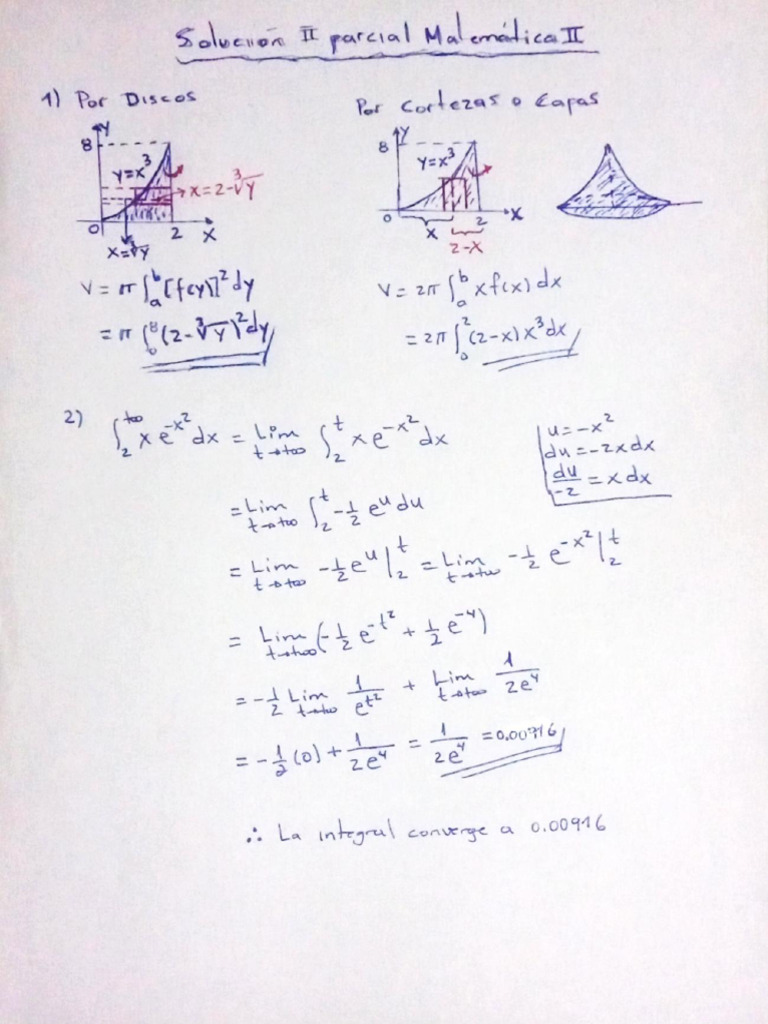 Solución II parcial Matemática II
1) Por Discos
8 Y
y=x³
x=2-∛y
0 2 X
x=∛y
V = π∫ₐᵇ [f(y)]² dy
= π∫₀⁸ (2-∛y)² dy
Por Cortezas o Capas
8 Y
y=x³
0 2 X
x
2-x
V = 2π∫ₐᵇ x f(x) dx
= 2π∫₀² (2-x) x³ dx
2) ∫₂^{+∞} x e^{-x²} dx = Lim_{t→+∞} ∫₂ᵗ x e^{-x²} dx
u = -x²
du = -2x dx
du/-2 = x dx
= Lim_{t→+∞} ∫₂ᵗ -1/2 eᵘ du
= Lim_{t→+∞} -1/2 eᵘ |₂ᵗ = Lim_{t→+∞} -1/2 e^{-x²} |₂ᵗ
= Lim_{t→+∞} (-1/2 e^{-t²} + 1/2 e^{-4})
= -1/2 Lim_{t→+∞} 1/e^{t²} + Lim_{t→+∞} 1/2e⁴
= -1/2 (0) + 1/2e⁴ = 1/2e⁴ = 0.00916
∴ La integral converge a 0.00916